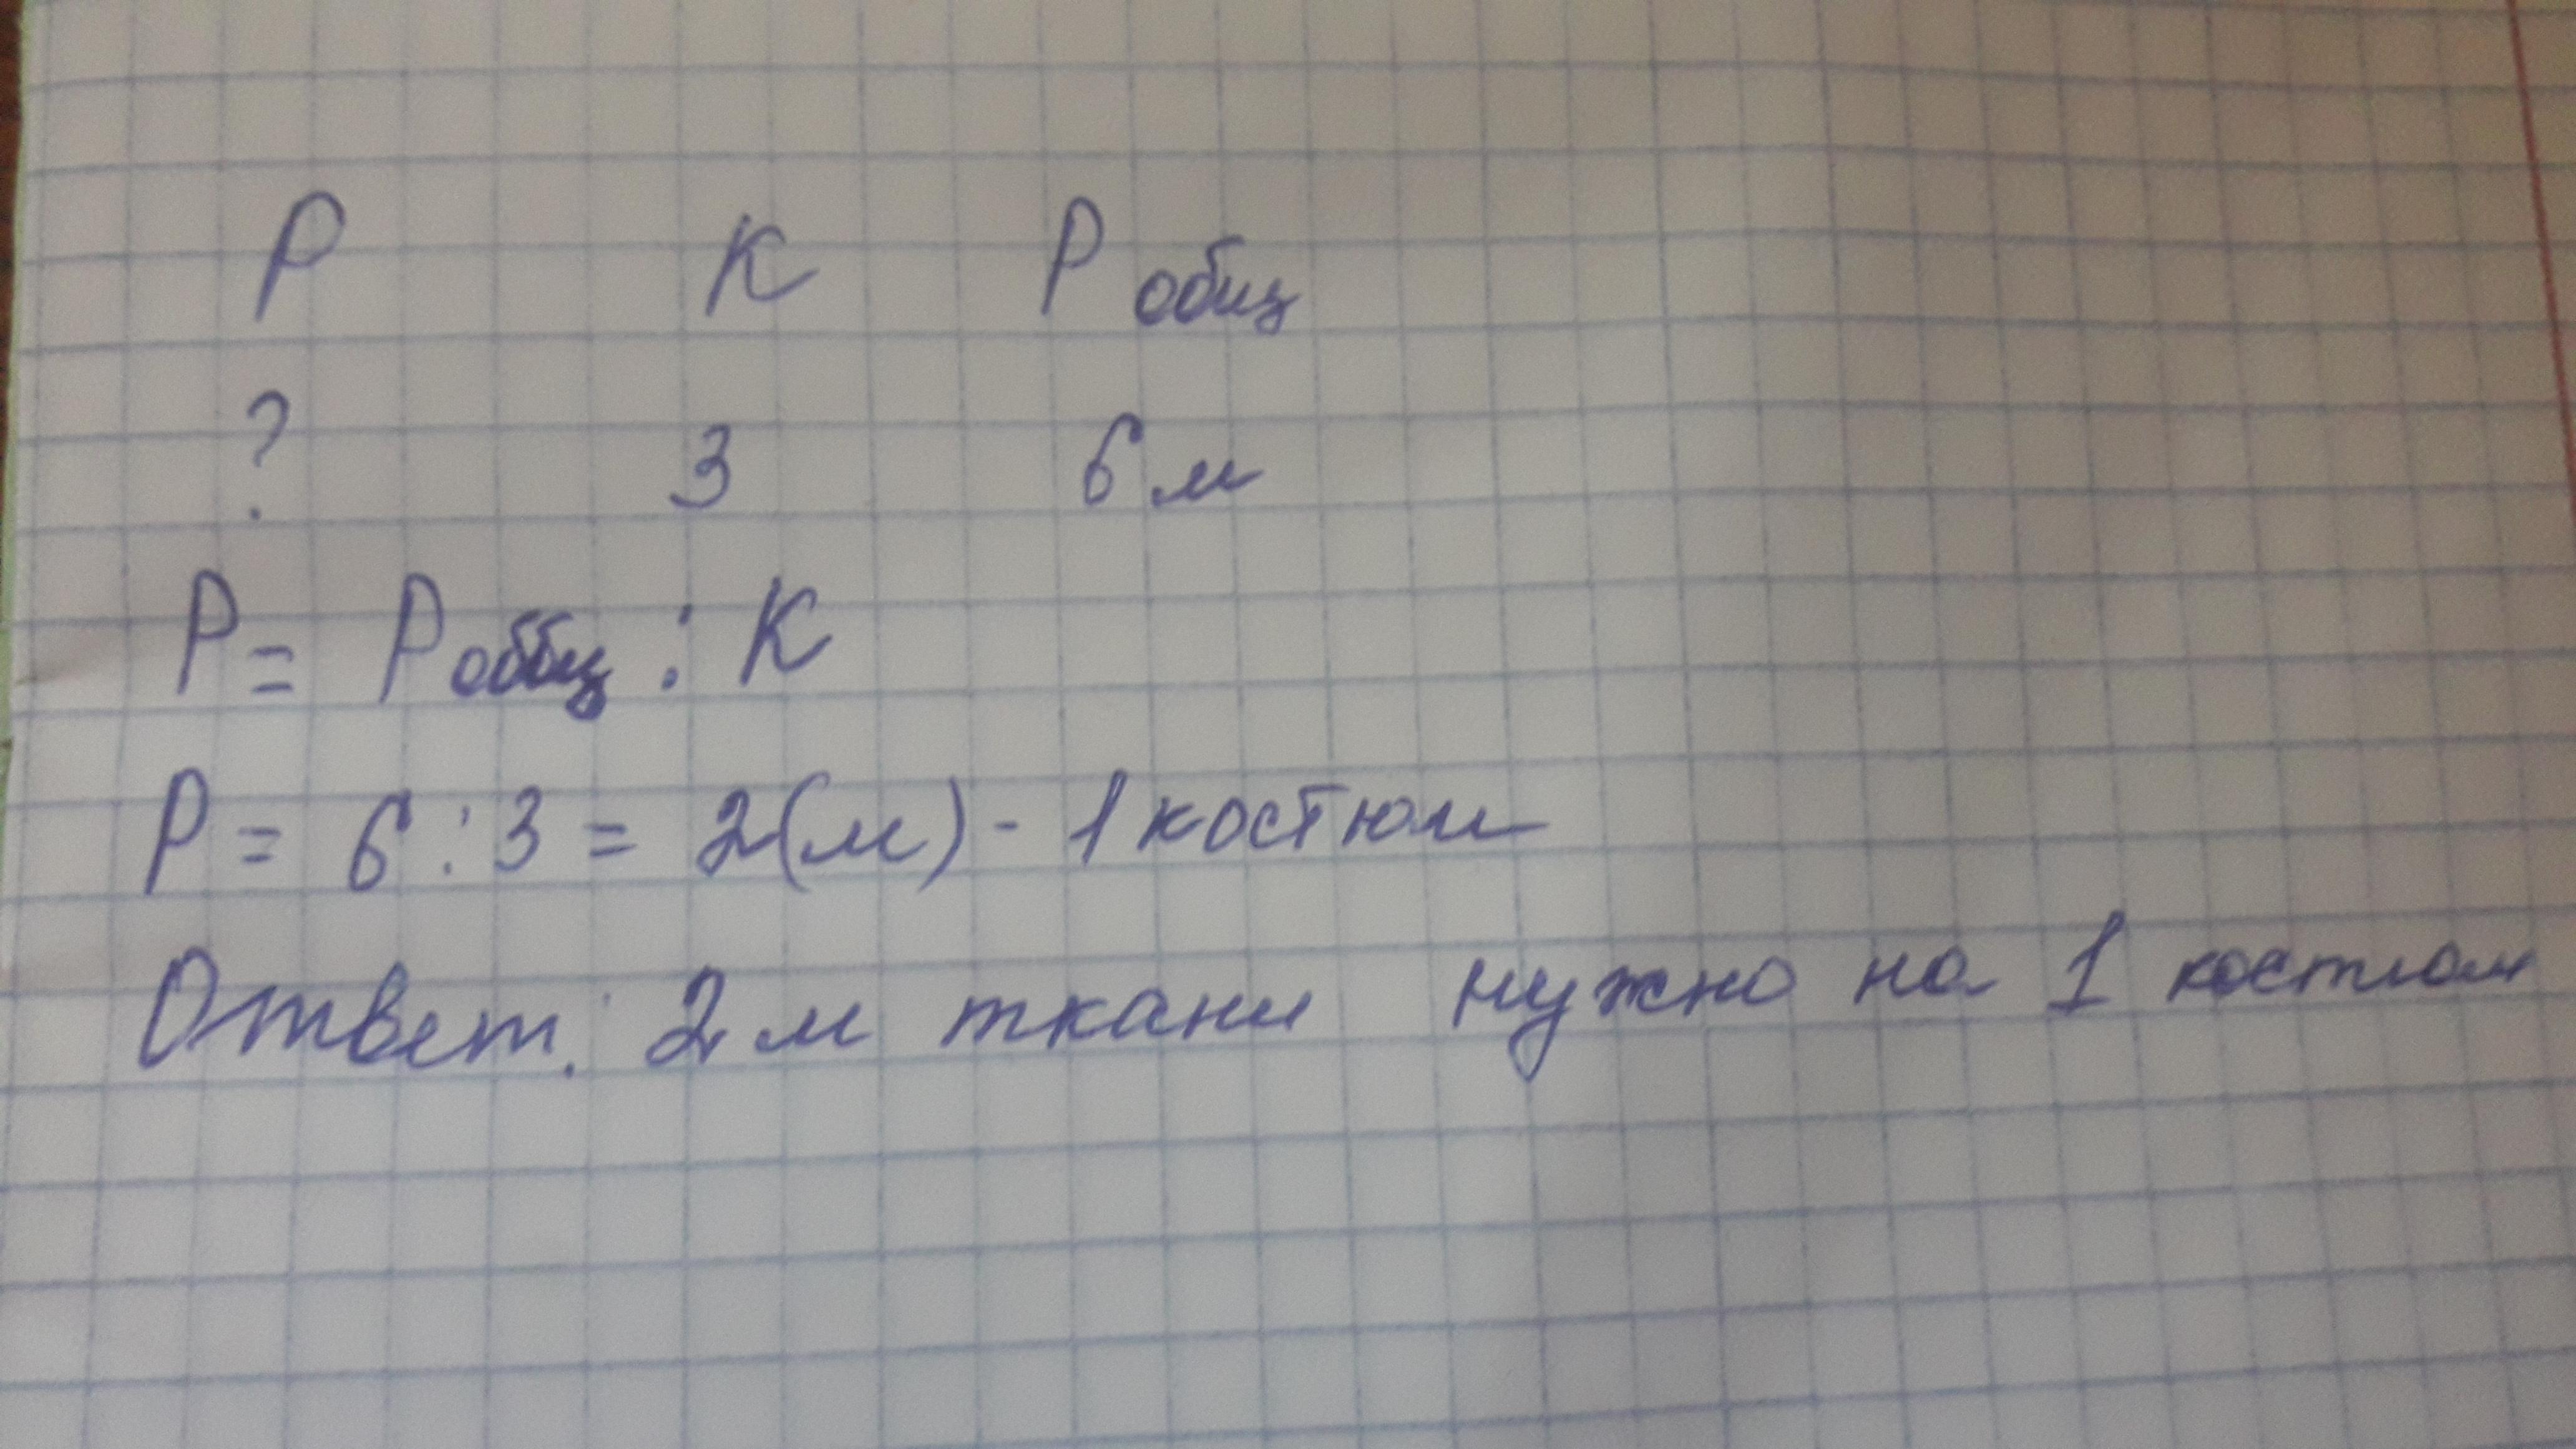 Р К Р общ
? 3 6 м
Р = Р общ : К
Р = 6 : 3 = 2 (м) - 1 костюм
Ответ: 2 м ткани нужно на 1 костюм